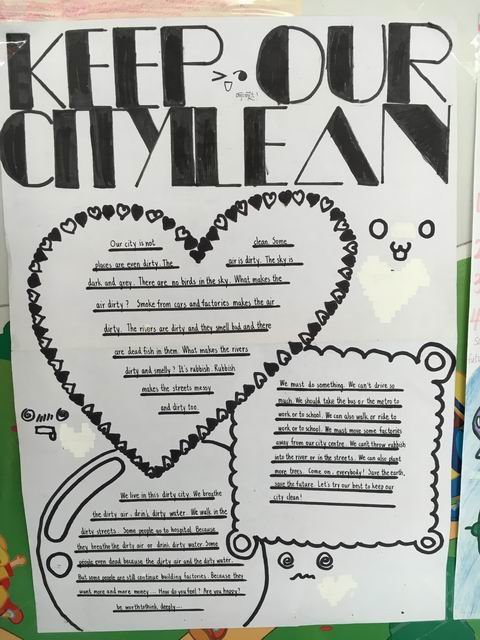 KEEP OUR
CITY LEAN
Our city is not clean. Some
places are even dirty. The air is dirty. The sky is
dark and grey. There are no birds in the sky. What makes the
air dirty? Smoke from cars and factories makes the air
dirty. The rivers are dirty and they smell bad and there
are dead fish in them. What makes the rivers
dirty and smelly? It's rubbish. Rubbish
makes the streets messy
and dirty too.
We must do something. We can't drive so
much. We should take the bus or the metro to
work or to school. We can also walk or ride to
work or to school. We must move some factories
away from our city centre. We can't throw rubbish
into the river or in the streets. We can also plant
more trees. Come on, everybody! Save the earth,
save the future. Let's try our best to keep our
city clean!
We live in this dirty city. We breathe
the dirty air, drink dirty water. We walk in the
dirty streets. Some people go to hospital. Because
they breathe the dirty air or drink dirty water. Some
people even dead because the dirty air and the dirty water.
But some people are still continue building factories. Because they
want more and more money... How do you feel? Are you happy?
be worth to think deeply...